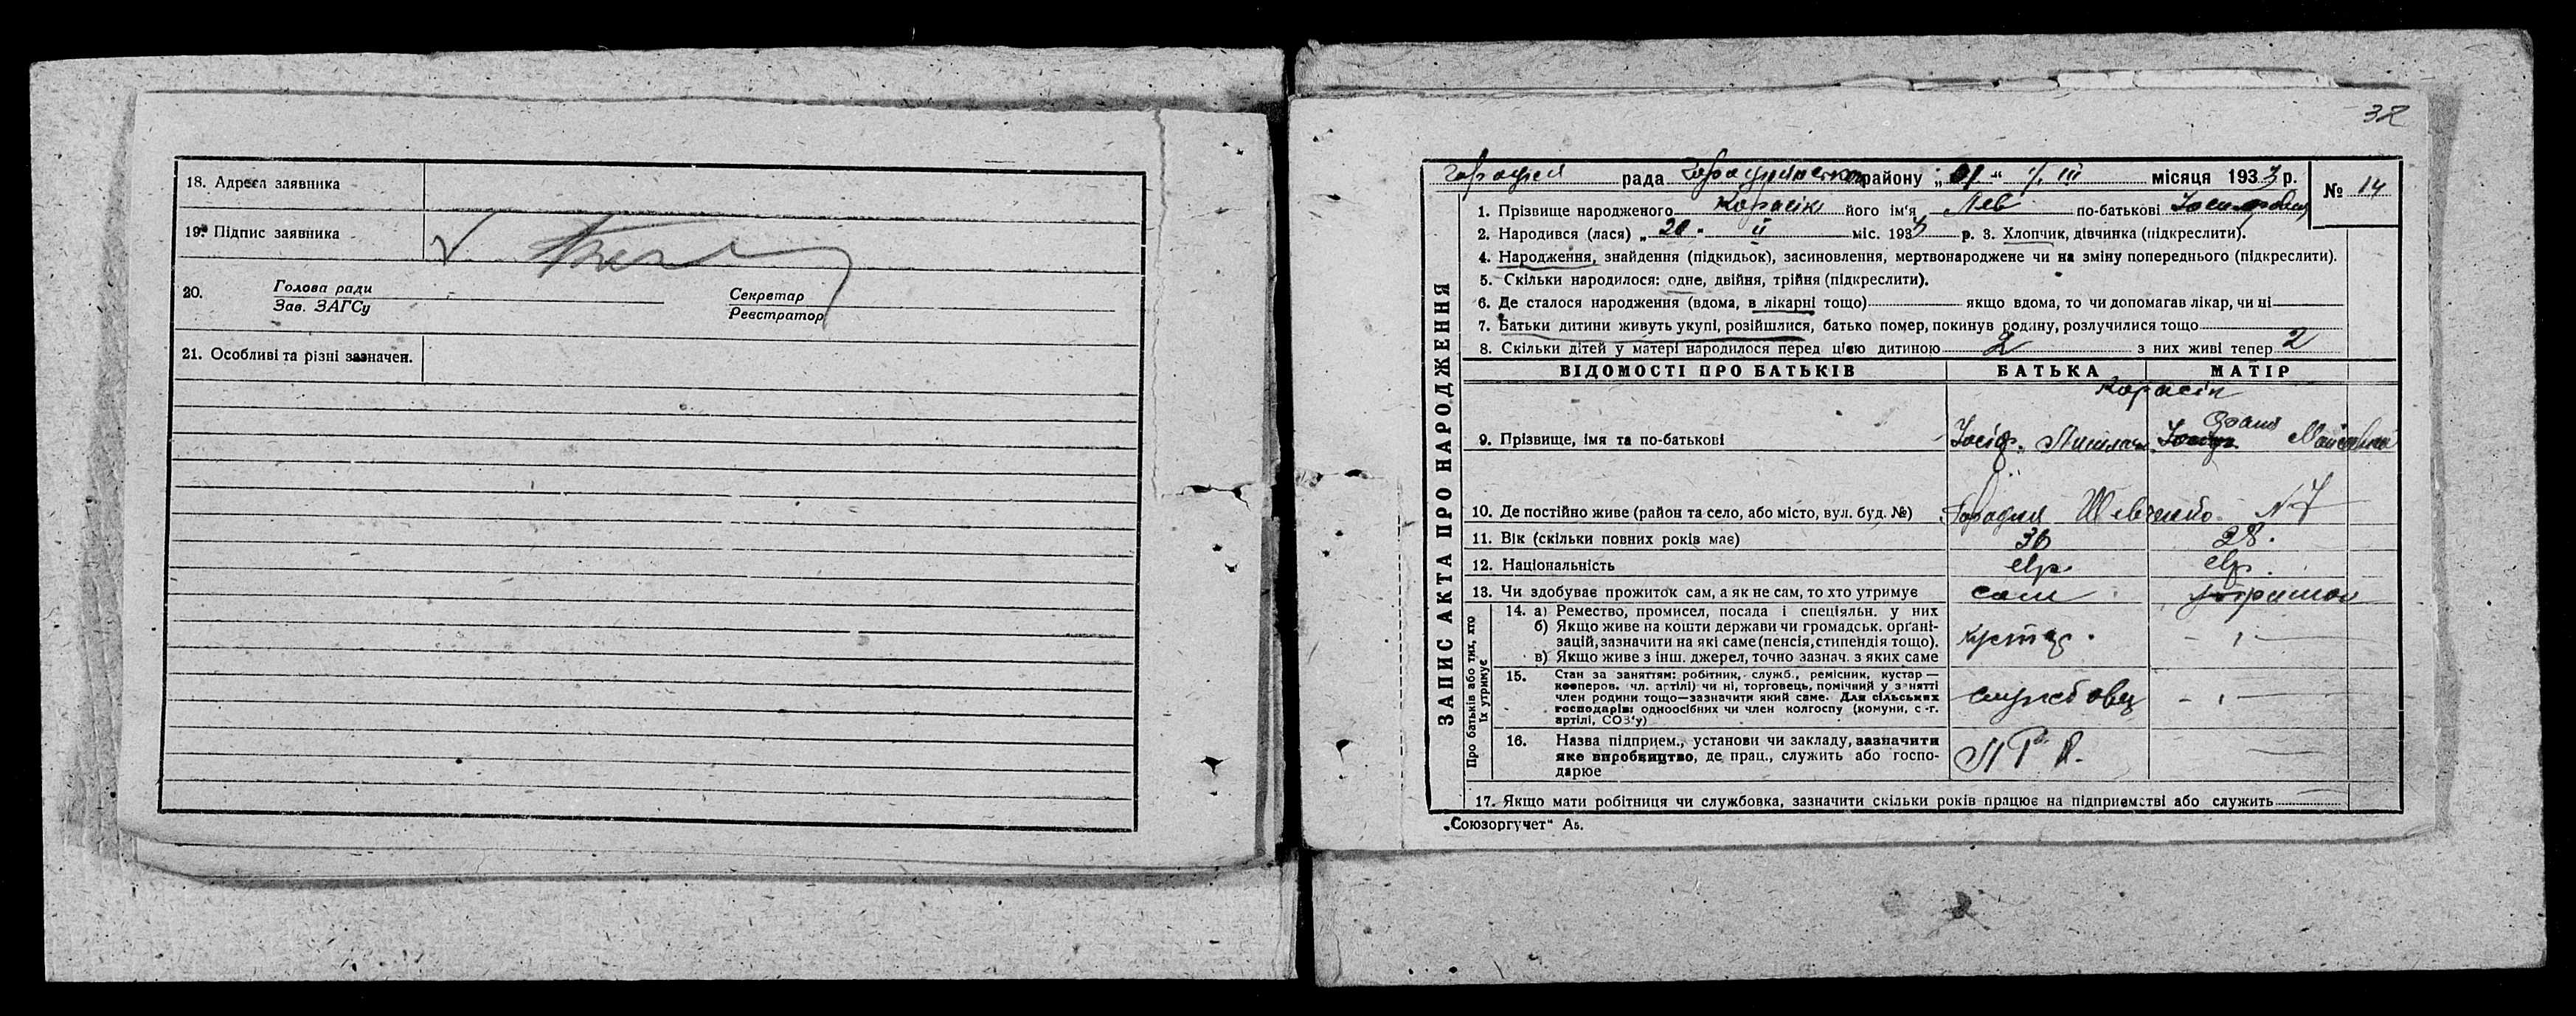 18. Адреса заявника
19. Підпис заявника
20. Голова ради Секретар
Зав. ЗАГСу Реєстратор
21. Особливі та різні зазначен.
32
рада району „01“ III місяця 1933 р.
№ 14
1. Прізвище народженого Карасік його ім'я Лев по-батькові
2. Народився (лася) „20“ II міс. 1933 р. 3. Хлопчик, дівчинка (підкреслити).
4. Народження, знайдення (підкидьок), засиновлення, мертвонароджене чи на зміну попереднього (підкреслити).
5. Скільки народилося: одне, двійня, трійня (підкреслити).
6. Де сталося народження (вдома, в лікарні тощо) якщо вдома, то чи допомагав лікар, чи ні
7. Батьки дитини живуть укупі, розійшлися, батько помер, покинув родину, розлучилися тощо
8. Скільки дітей у матері народилося перед цією дитиною 2 з них живі тепер 2
ЗАПИС АКТА ПРО НАРОДЖЕННЯ
ВІДОМОСТІ ПРО БАТЬКІВ БАТЬКА МАТІР
Карасік
9. Прізвище, імя та по-батькові Йосіф
10. Де постійно живе (район та село, або місто, вул. буд. №) Городня Шевченко N 7
11. Вік (скільки повних років має) 28.
12. Національність євр. євр.
13. Чи здобуває прожиток сам, а як не сам, то хто утримує сам
Про батьків або тих, хто їх утримує
14. а) Ремество, промисел, посада і спеціяльн. у них
б) Якщо живе на кошти держави чи громадськ. органі-
зацій, зазначити на які саме (пенсія, стипендія тощо).
в) Якщо живе з інш. джерел, точно зазнач. з яких саме
15. Стан за заняттям: робітник, служб., ремісник, кустар —
кооперов. чл. артілі) чи ні, торговець, помічний у занятті
член родини тощо—зазначити який саме. Для сільських
господарів: одноосібних чи член колгоспу (комуни, с.-г.
артілі, СОЗ'у)
службовец
16. Назва підприєм., установи чи закладу, зазначити
яке виробництво, де прац., служить або госпо-
дарює
17. Якщо мати робітниця чи службовка, зазначити скільки років працює на підприємстві або служить
„Союзоргучет“ Аб.